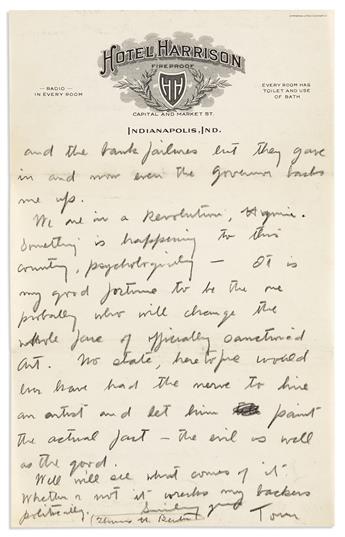 HOTEL HARRISON
FIREPROOF
HH
RADIO
IN EVERY ROOM
EVERY ROOM HAS
TOILET AND USE
OF BATH
CAPITAL AND MARKET ST.
INDIANAPOLIS, IND.
and the bank failures but they gave
in and now even the Governor backs
me up.
We are in a Revolution,
Something is happening to this
country, psychologically — It is
my good fortune to be the one
probably who will change the
whole face of officially sanctioned
Art. No state, heretofore would
ever have had the nerve to hire
an artist and let him paint
the actual fact – the evil as well
as the good.
Well will see what comes of it
Whether or not it wrecks my backers
politically.
Tom